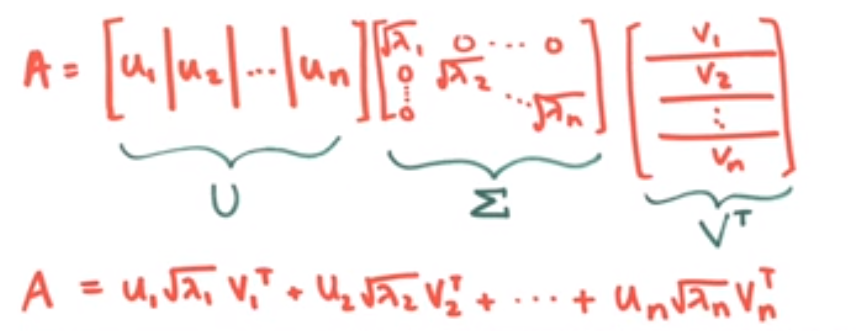 A = [u₁|u₂|...|uₙ] [√λ₁ 0 ... 0
0 √λ₂
⋮
0 ... √λₙ] [v₁
v₂
⋮
vₙ]
U Σ Vᵀ
A = u₁√λ₁ v₁ᵀ + u₂√λ₂ v₂ᵀ + ... + uₙ√λₙ vₙᵀ